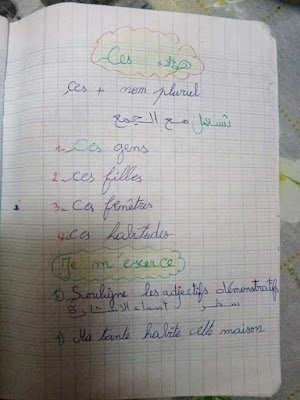 Ces هؤلاء
Ces + nom pluriel
تستعمل مع الجمع
1- Ces gens
2- Ces filles
3- Ces fenêtres
4- Ces habitudes
Je m'escerce
1) Souligne les adjectifs démonstratifs
أسماء الإشارة
1) Ma tante habite cette maison